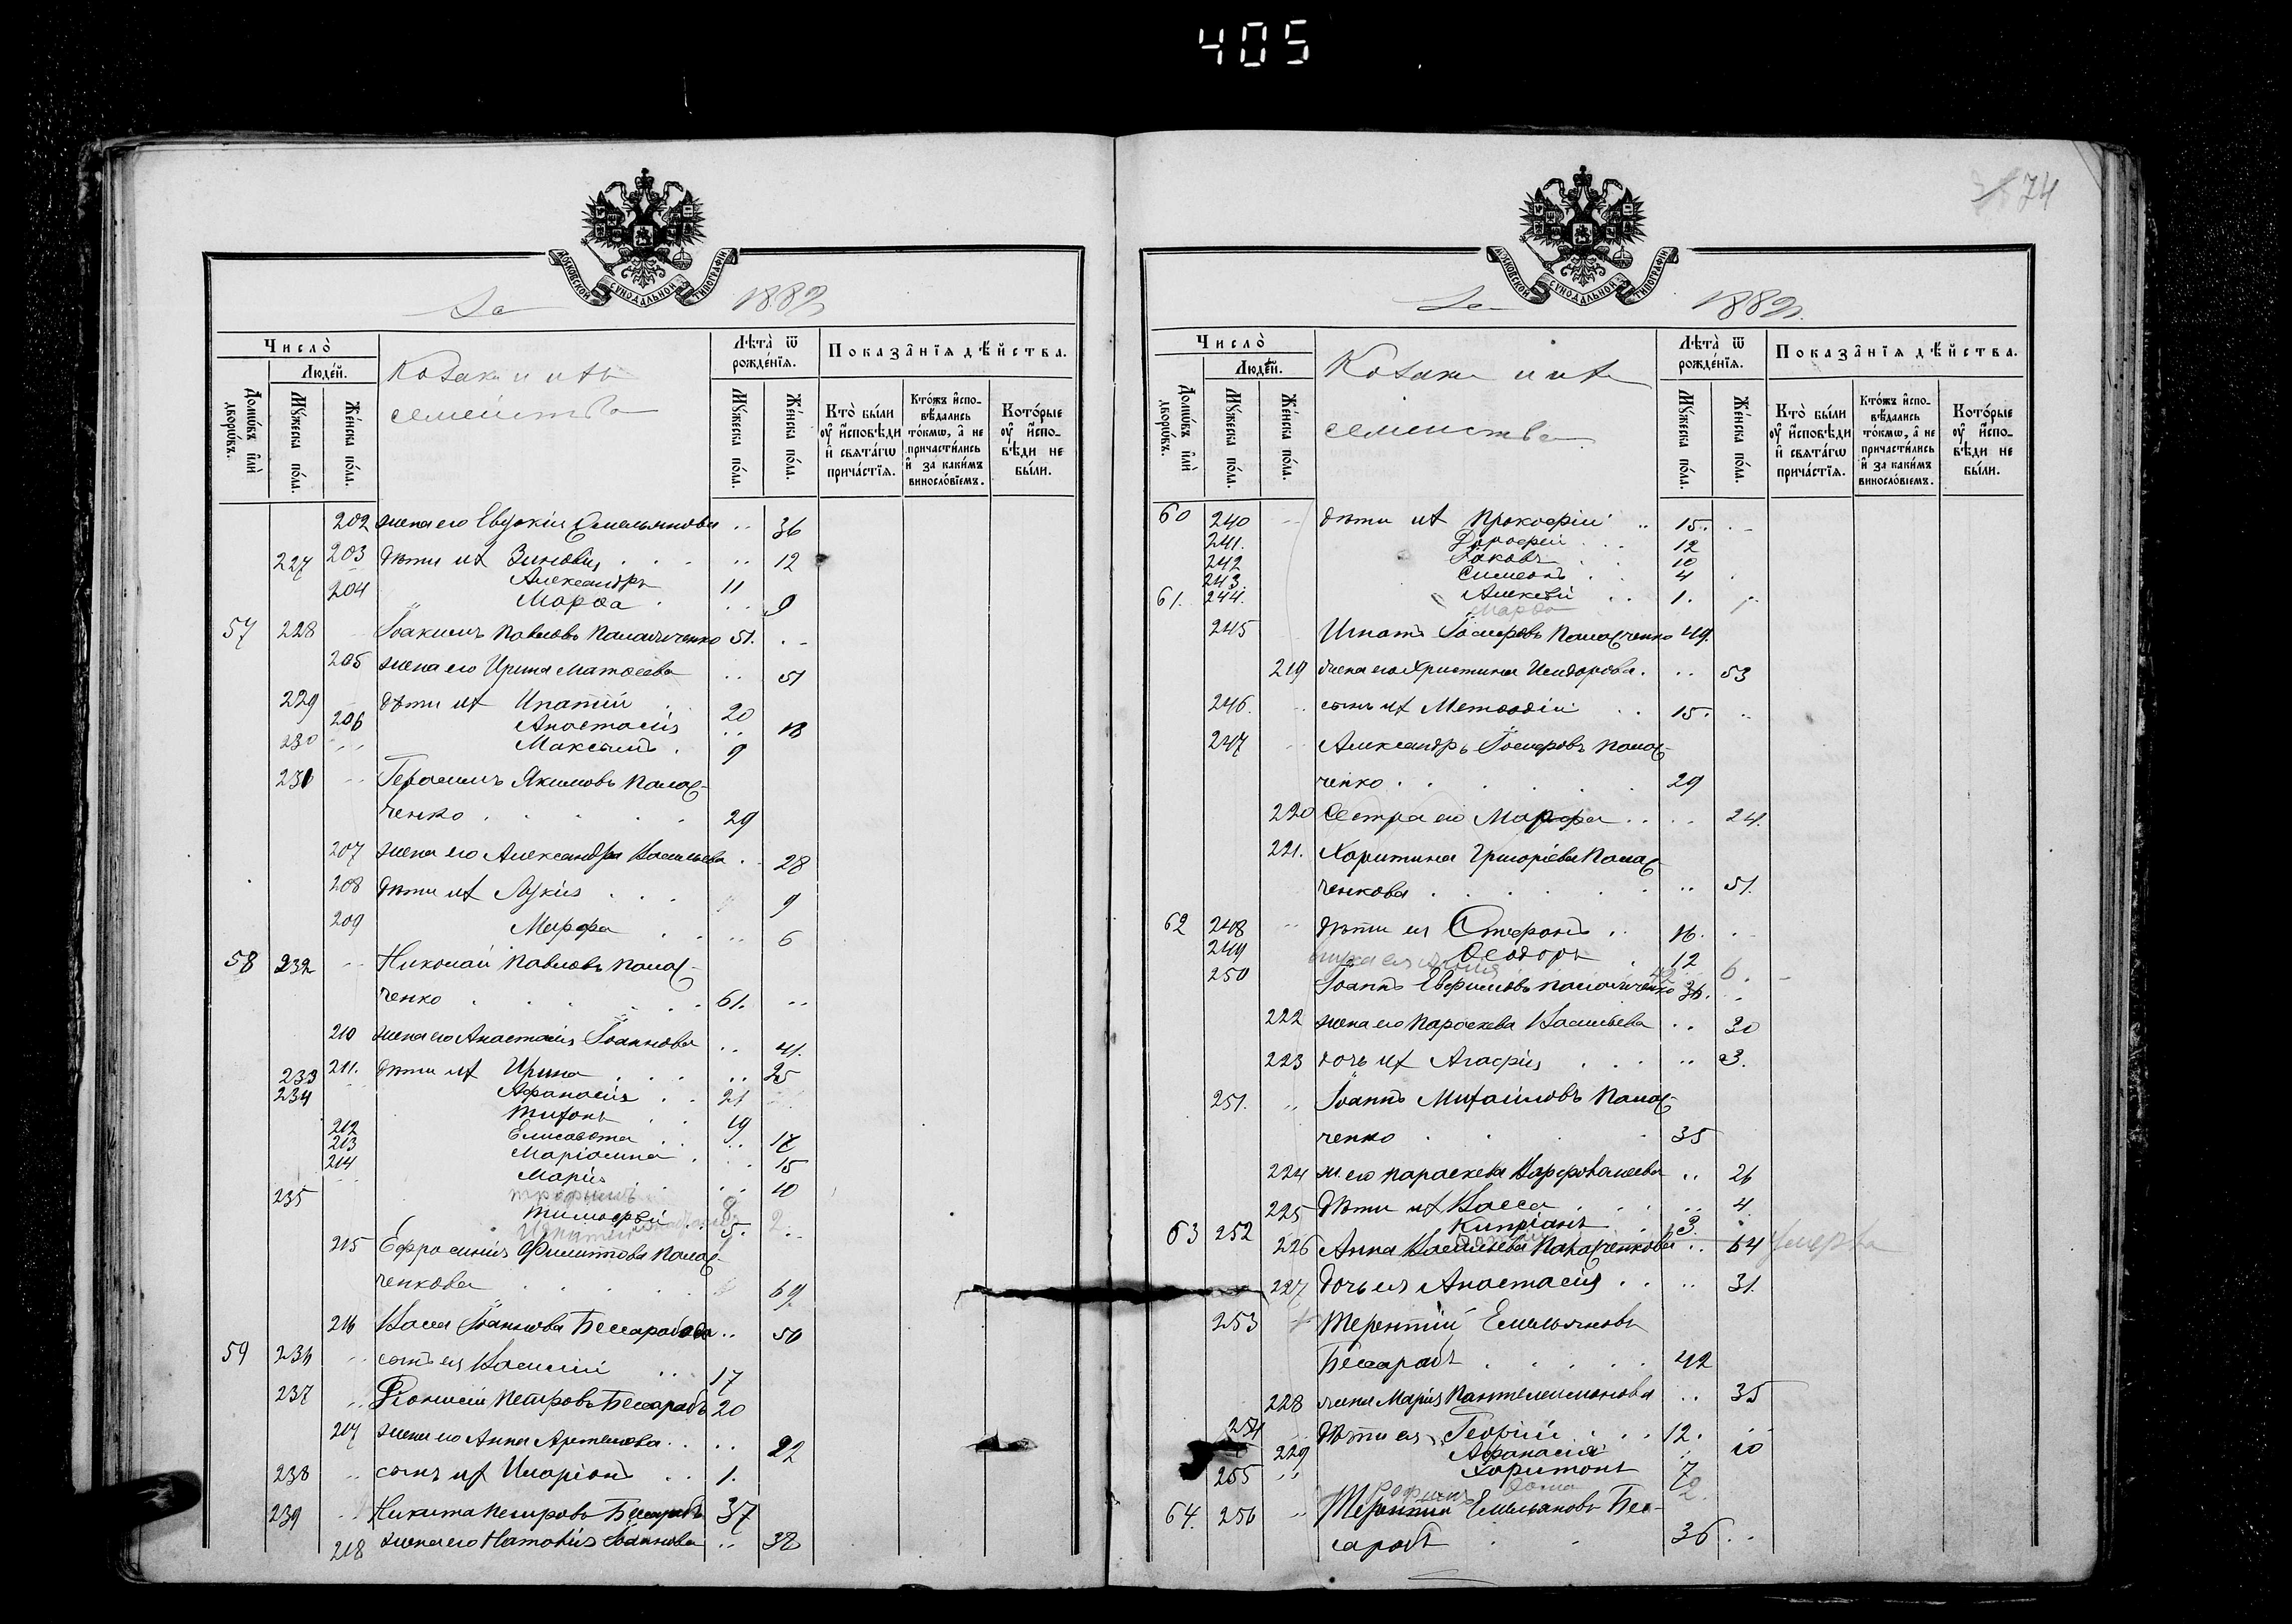 405
74
МОСКОВСКОЙ СѴНОДАЛЬНОЙ ТИПОГРАФІИ
За 1882
Число̀
Людѐй.
Домѡ́въ и҆лѝ дворѡ́въ.
Мꙋ́жеска по́ла.
Же́нска по́ла.
Козаки и ихъ
семейства
Лѣ́та ѿ рожде́нїѧ.
Мꙋ́жеска по́ла.
Же́нска по́ла.
Показа̑нїѧ дѣ́йства.
Кто̀ бы́ли ᲂу҆ и҆сповѣ́ди и҆ свѧта́гѡ прича́стїѧ.
Кто́жъ и҆сповѣ́дались то́кмѡ, а҆ не причасти́лись и҆ за каки́мъ винословїемъ.
Кото́рые ᲂу҆ и҆сповѣ́ди не бы́ли.
202 жена его Евдокія Емельянова .. 36
203 дѣти их Зиновія .. 12
227 Александръ 11
204 Марѳа .. 9
57 228 Іоакимъ Павловъ Панасченко 51. ..
205 жена его Ирина Матѳеева .. 51
229 дѣти их Ипатій 20
206 Анастасія .. 18
230 Максимъ 9
231 Герасимъ Якимовъ Панас-
ченко 29
207 жена его Александра Васильева .. 28
208 дѣти их Лукія 9
209 Марфа .. 6
58 232 Николай Павловъ Панас-
ченко 61. ..
210 жена его Анастасія Іоаннова .. 41.
211. дѣти их Ирина .. 25
233 Афанасій 21
234 Тихонъ 19
212 Елисавета .. 17
213 Маріамна .. 15
214 Марія .. 10
Трофимъ 8
235 Тимофей 5. ..
215 Ефросинія Филиппова Панас-
ченкова 69.
216 Васса Іоаннова Бессарабова .. 50
59 236 сынъ ея Василій 17
237 Діонисій Петровъ Бессарабъ 20
217 жена его Анна Артемова .. 22
238 сынъ их Иларіонъ 1.
239 Никита Петровъ Бессарабъ 37
218 жена его Наталія Іоаннова .. 38
МОСКОВСКОЙ СѴНОДАЛЬНОЙ ТИПОГРАФІИ
За 1882
Число̀
Людѐй.
Домѡ́въ и҆лѝ дворѡ́въ.
Мꙋ́жеска по́ла.
Же́нска по́ла.
Козаки и ихъ
семейства
Лѣ́та ѿ рожде́нїѧ.
Мꙋ́жеска по́ла.
Же́нска по́ла.
Показа̑нїѧ дѣ́йства.
Кто̀ бы́ли ᲂу҆ и҆сповѣ́ди и҆ свѧта́гѡ прича́стїѧ.
Кто́жъ и҆сповѣ́дались то́кмѡ, а҆ не причасти́лись и҆ за каки́мъ винословїемъ.
Кото́рые ᲂу҆ и҆сповѣ́ди не бы́ли.
60 240 дѣти их Прокофій 15.
241. Дорофей 12
242 Іаковъ 10
243. Симеонъ 4
61. 244. Алексѣй 1.
Марѳа
245 Игнатъ Іосифовъ Панасченко 49.
219 жена его Христина Исидорова .. 53
246. сынъ их Меѳодій 15. ..
247 Александръ Іосифовъ Панас-
ченко 29
220 Сестра его Марфа .. 24.
221. Харитина Григоріева Панас-
ченкова .. 51.
62 248 дѣти ея Стефанъ 16.
249 Ѳеодоръ 12
250 Іоаннъ Евфимовъ Панасченко 36. 42
222 жена его Параскева Васильева .. 30
223 дочь их Агафія .. 3.
251. Іоаннъ Михайловъ Панас-
ченко 35
224 ж. его Параскева Варфоломеева .. 26
225 дѣти их Васса .. 4.
63 252 Кипріанъ 3.
226 Анна Васильева Панасченкова .. 64 умерла
227 дочь ея Анастасія .. 31.
253 Терентій Емельяновъ
Бессарабъ 42
228 жена Марія Пантелеимонова .. 35
254 дѣти ея Георгій 12. ..
229 Афанасія .. 10
255 Харитонъ 7
64. 256 Терентій Емельяновъ Бес-
сарабъ 36 ..